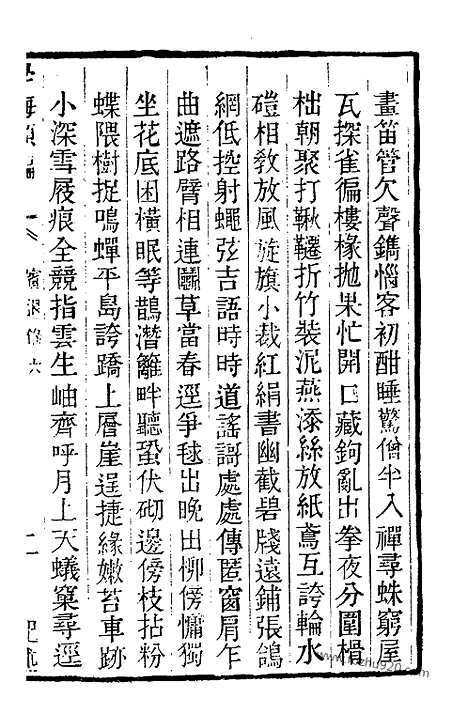 畫笛管欠聲鐫惱客初酣睡驚僧半入禪尋蛛窮屋
瓦探雀徧樓椽拋果忙開口藏鉤亂出拳夜分圍榾
柮朝聚打鞦韆折竹裝泥燕添絲放紙鳶互誇輪水
磑相敎放風旋旗小裁紅絹書幽截碧牋遠鋪張鴿
網低控射蠅弦吉語時時道謠謌處處傳匿窗肩乍
曲遮路臂相連鬭草當春逕爭毬出晚田柳傍慵獨
坐花底困橫眠等鵲潛籬畔聽蛩伏砌邊傍枝拈粉
蝶隈樹捉鳴蟬平島誇蹻上層崖逞捷緣嫩苔車跡
小深雪屐痕全競指雲生岫齊呼月上天蟻窠尋逕
學海類編
二
www.kzhu920.com